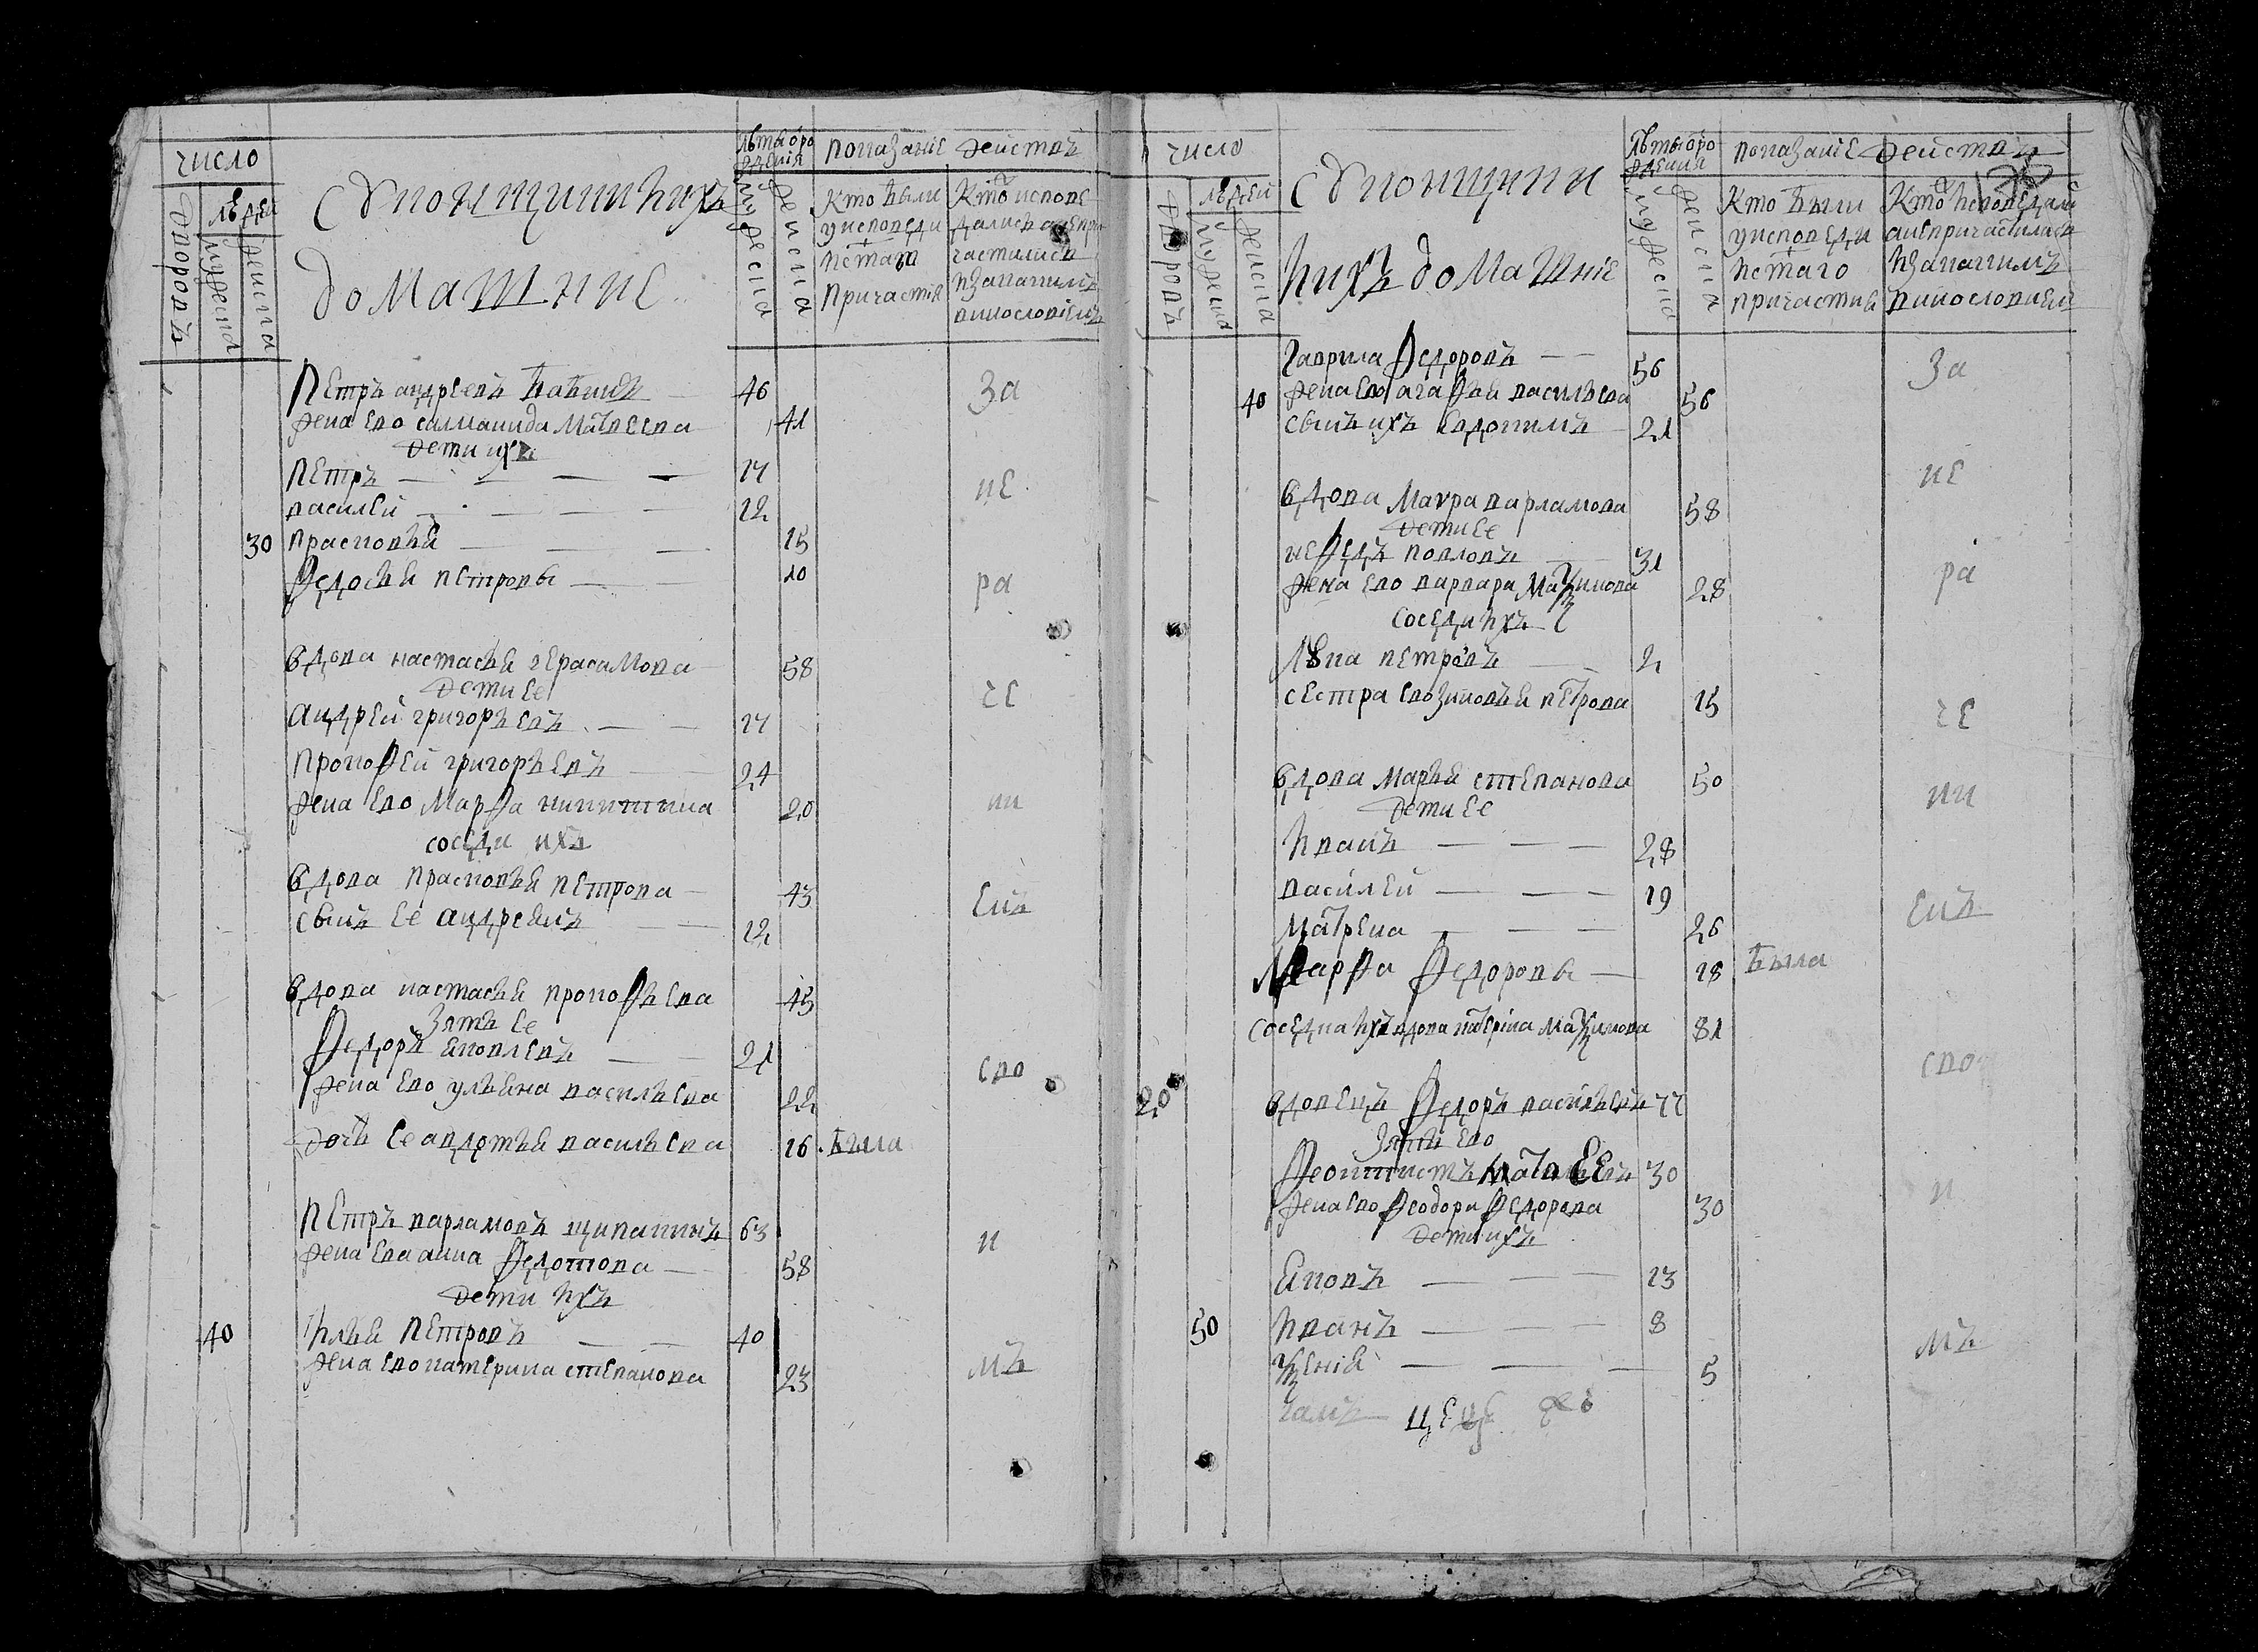 число
дворовъ
людей
мужеска
женска
Однодворщики ихъ
домашние
лѣта от рождения
мужеска
женска
показание действъ
Кто были у исповеди и стаго причастия
Кто исповедались а не причастились и за каким винословиемъ
Петръ андреевъ бабинъ 46
жена ево саламанида Матвеева 41
дети ихъ
Петръ 17
василей 12
30 прасковья 15
Федосья петровы 10
вдова настасья герасимова 58
дети ее
андрей григорьевъ 17
прокофей григорьевъ 24
жена ево Марфа никитина 20
соседи ихъ
вдова прасковья петрова 43
сынъ ее андреянъ 12
вдова настасья прокофьева 45
зять ее
Федоръ яковлевъ 21
жена ево ульяна васильева 22
дочь ее авдотья васильева 16 была
Петръ варламовъ 63
жена ево анна Федотова 58
дети ихъ
40 илья Петровъ 40
жена ево катерина степанова 23
за
не
ра
че
ни
емъ
сво
и
мъ
число
дворовъ
людей
мужеска
женска
ихъ домашние
лѣты от рождения
мужеска
женска
показание действъ
Кто были у исповеди и стаго причастия
Кто исповедались а не причастились и за каким винословием
Гаврила Федоровъ 56
40 жена ево агафья васильева 56
сынъ ихъ евдокимъ 21
вдова Мавра варламова 58
дети ее
нефедъ павловъ 31
жена ево варвара Маѯимова 28
соседи ихъ
Лука петровъ 2
сестра ево зиновья петрова 15
вдова Марья степанова 50
дети ее
иванъ 28
василей 19
Матрена 26
Марфа Федоровы 18 была
соседка ихъ вдова катерина Маѯимова 81
20 вдовецъ Федоръ васильевъ 77
зять ево
Феоктистъ Матвеевъ 30
жена ево Феодора Федорова 30
дети ихъ
яковъ 13
50 иванъ 8
ѯения 5
за
не
ра
че
ни
емъ
сво
и
мъ